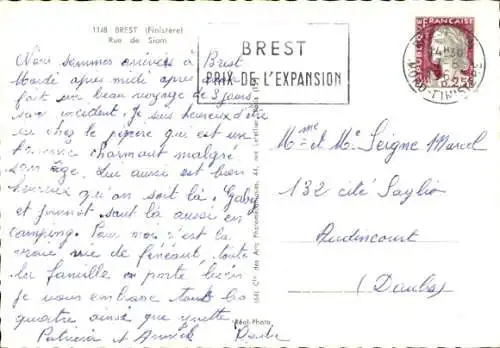 1148 BREST (Finistère)
Rue de Siam
BREST
PRIX DE L'EXPANSION
RÉPUBLIQUE FRANÇAISE
Nous sommes arrivés à Brest
Mardi après midi après avoir
fait un beau voyage de 3 jours
sans incident. Je suis heureux d'être
ici chez le pépère qui est un
homme charmant malgré
son âge. Lui aussi est bien
heureux qu'on soit là. Gaby
et sont là aussi en
camping. Pour moi c'est la
vraie vie de fénéant, toute
la famille en porte bien
Je vous embrasse tous les
quatre ainsi que yvette
Patricia et Annick
Réal-Photo
Mme et Mr Seigne Marcel
132 cité
Audincourt
(Doubs)